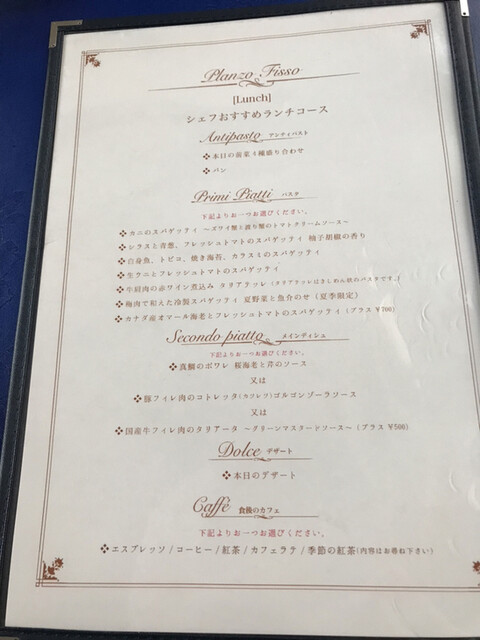 Planzo Fisso
[Lunch]
シェフおすすめランチコース
Antipasto アンティパスト
❖本日の前菜4種盛り合わせ
❖パン
Primi Piatti パスタ
下記よりお一つお選びください。
❖カニのスパゲッティ ～ズワイ蟹と渡り蟹のトマトクリームソース～
❖シラスと青葱、フレッシュトマトのスパゲッティ 柚子胡椒の香り
❖白身魚、トビコ、焼き海苔、カラスミのスパゲッティ
❖生ウニとフレッシュトマトのスパゲッティ
❖牛肩肉の赤ワイン煮込み タリアテッレ(タリアテッレはきしめん状のパスタです。)
❖梅肉で和えた冷製スパゲッティ 夏野菜と魚介のせ(夏季限定)
❖カナダ産オマール海老とフレッシュトマトのスパゲッティ(プラス ¥700)
Secondo piatto メインディシュ
下記よりお一つお選びください。
❖真鯛のポワレ 桜海老と芹のソース
又は
❖豚フィレ肉のコトレッタ(カツレツ)ゴルゴンゾーラソース
又は
❖国産牛フィレ肉のタリアータ ～グリーンマスタードソース～(プラス ¥500)
Dolce デザート
❖本日のデザート
Caffè 食後のカフェ
下記よりお一つお選びください。
❖エスプレッソ/コーヒー/紅茶/カフェラテ/季節の紅茶(内容はお尋ね下さい)